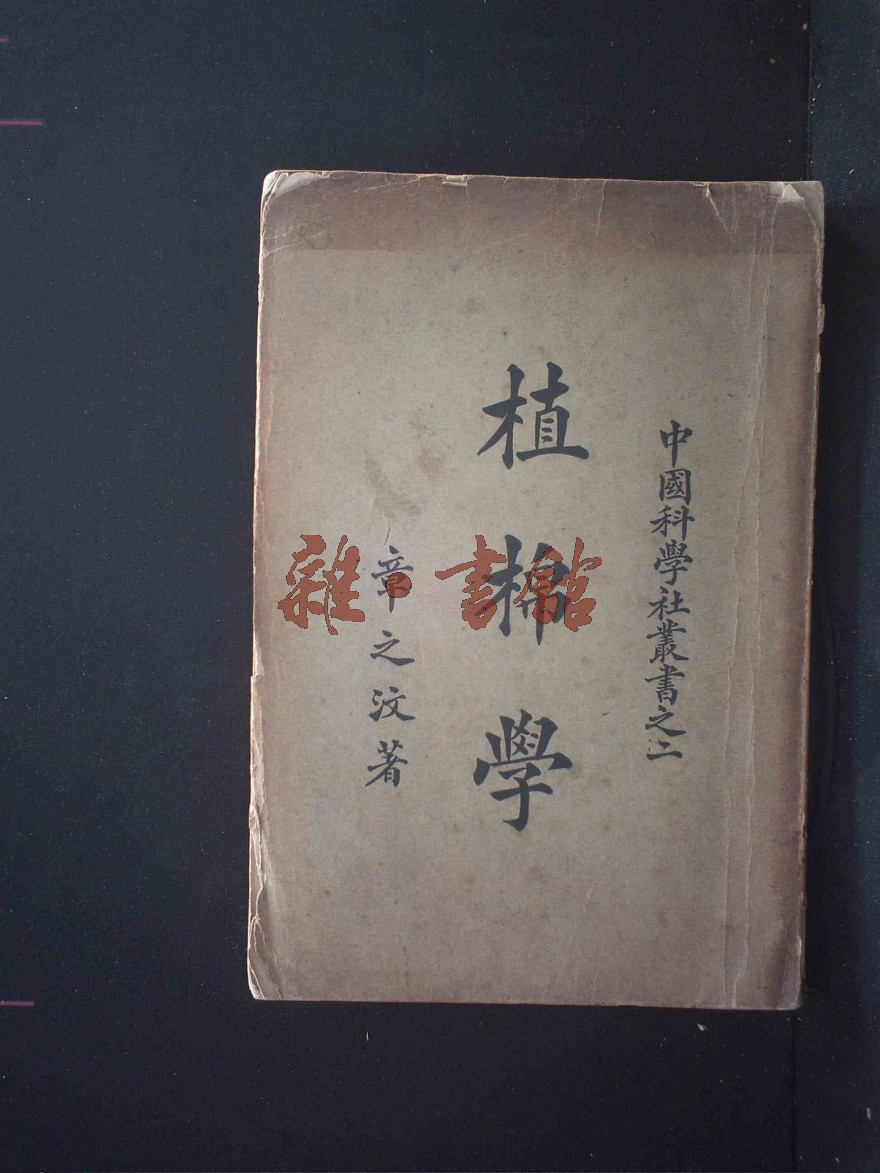 中國科學社叢書之二
植棉學
章之汶著
雜·書館